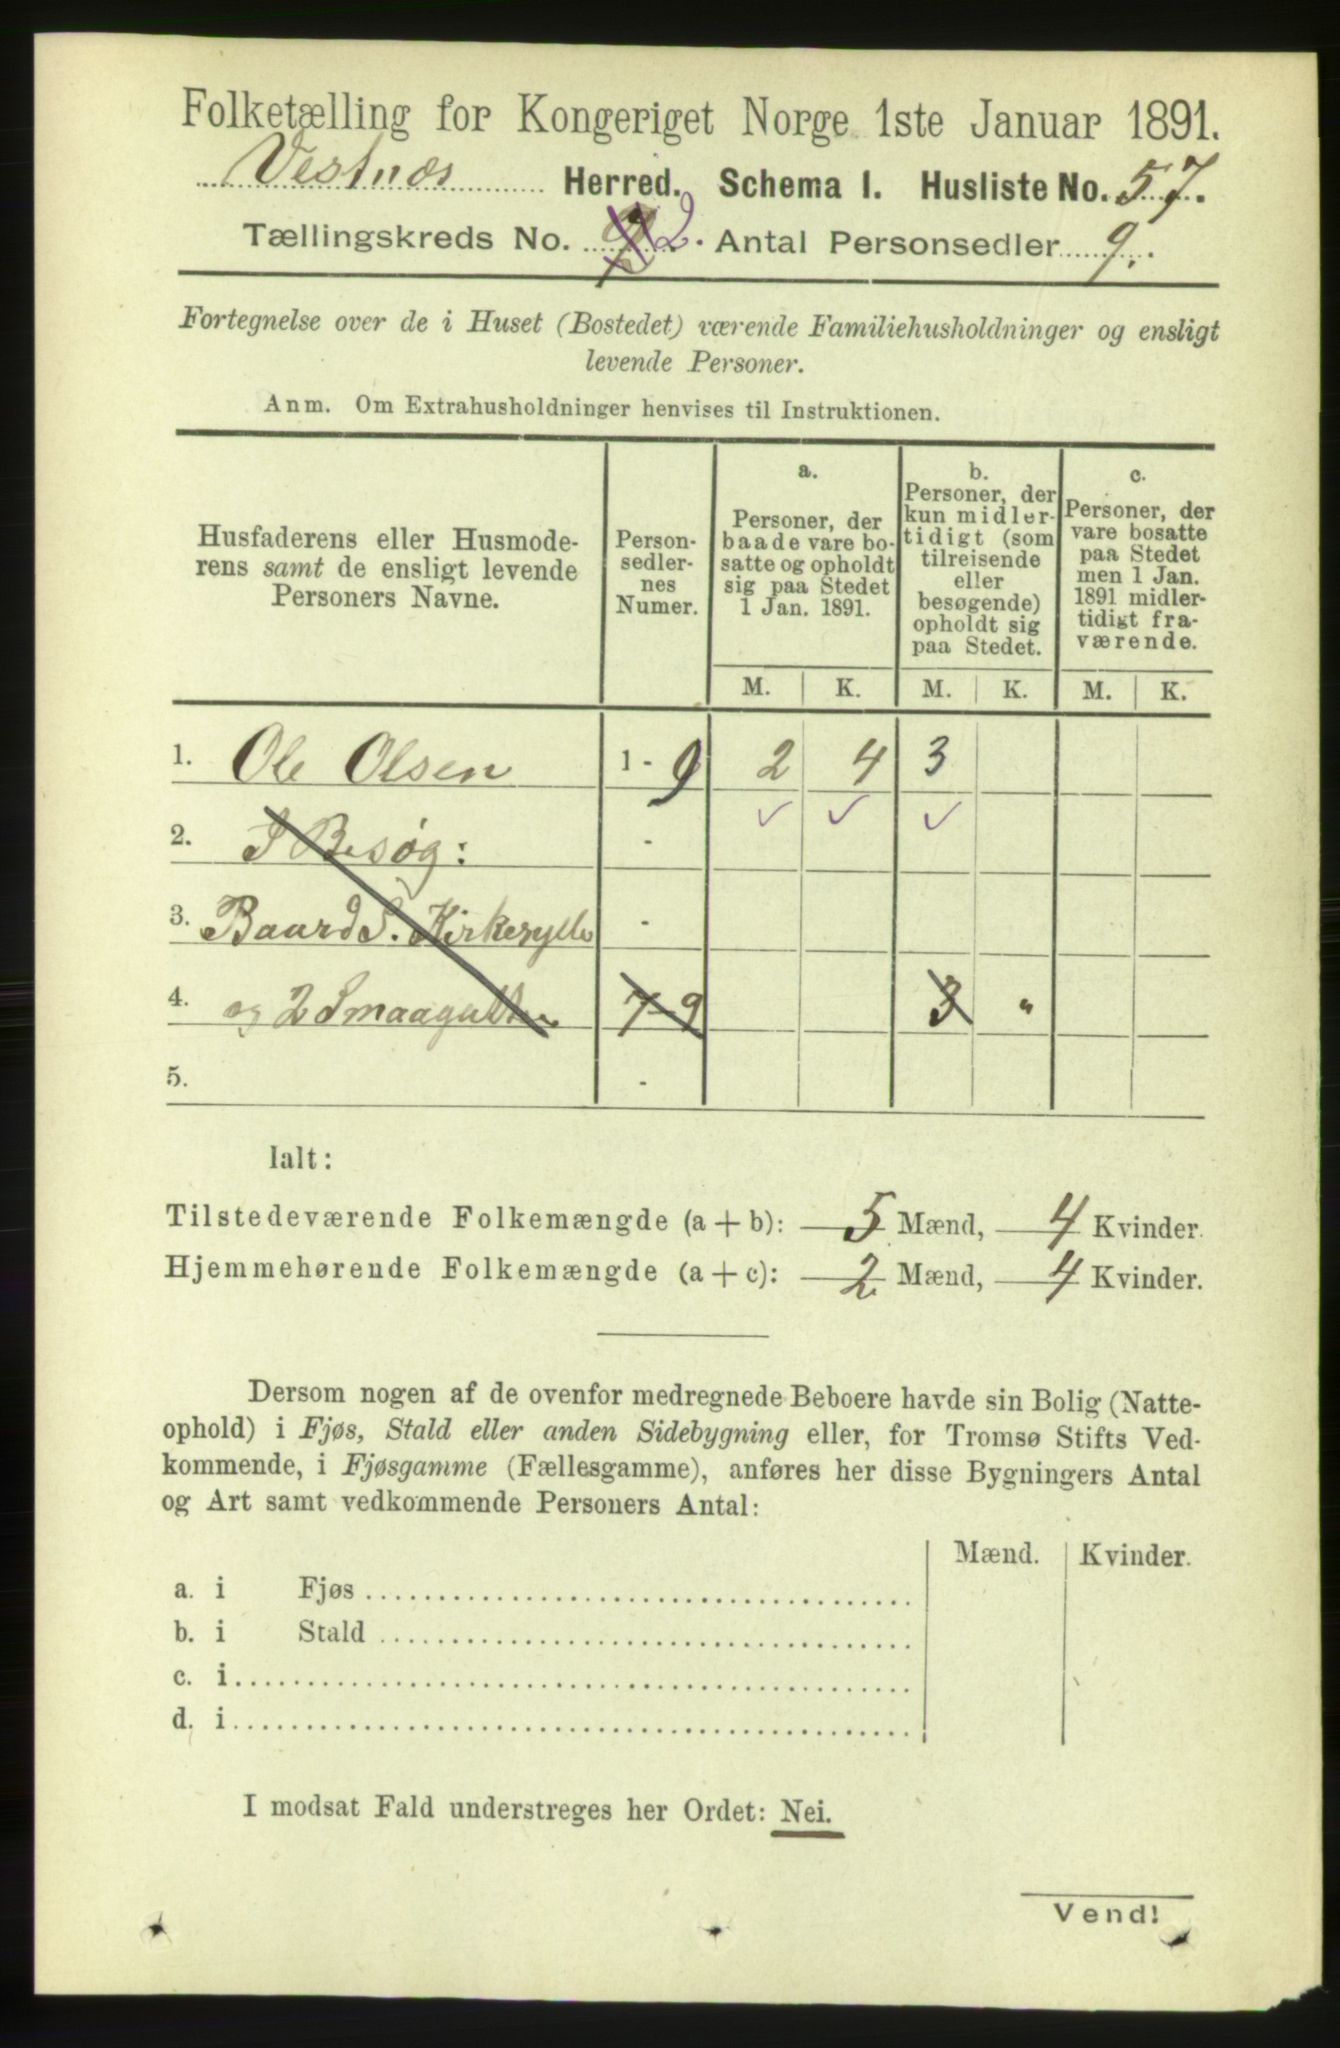 Folketælling for Kongeriget Norge 1ste Januar 1891.
Vestnæs Herred. Schema 1. Husliste No. 57.
Tællingskreds No. 2. Antal Personsedler 9.
Fortegnelse over de i Huset (Bostedet) værende Familiehusholdninger og ensligt
levende Personer.
Anm. Om Extrahusholdninger henvises til Instruktionen.
Husfaderens eller Husmode-
rens samt de ensligt levende
Personers Navne.
Person-
sedler-
nes
Numer.
a.
Personer, der
baade vare bo-
satte og opholdt
sig paa Stedet
1 Jan. 1891.
b.
Personer, der
kun midler-
tidigt (som
tilreisende
eller
besøgende)
opholdt sig
paa Stedet.
c.
Personer, der
vare bosatte
paa Stedet
men 1 Jan.
1891 midler-
tidigt fra-
værende.
M. K. M. K. M. K.
1. Ole Olsen 1 - 9 2 4 3
2. I Besøg: -
3. Baard S. -
4. og 2 7-9 3 "
5. -
Ialt:
Tilstedeværende Folkemængde (a + b): 5 Mænd, 4 Kvinder.
Hjemmehørende Folkemængde (a + c): 2 Mænd, 4 Kvinder.
Dersom nogen af de ovenfor medregnede Beboere havde sin Bolig (Natte-
ophold) i Fjøs, Stald eller anden Sidebygning eller, for Tromsø Stifts Ved-
kommende, i Fjøsgamme (Fællesgamme), anføres her disse Bygningers Antal
og Art samt vedkommende Personers Antal:
Mænd. Kvinder.
a. i Fjøs
b. i Stald
c. i
d. i
I modsat Fald understreges her Ordet: Nei.
Vend!